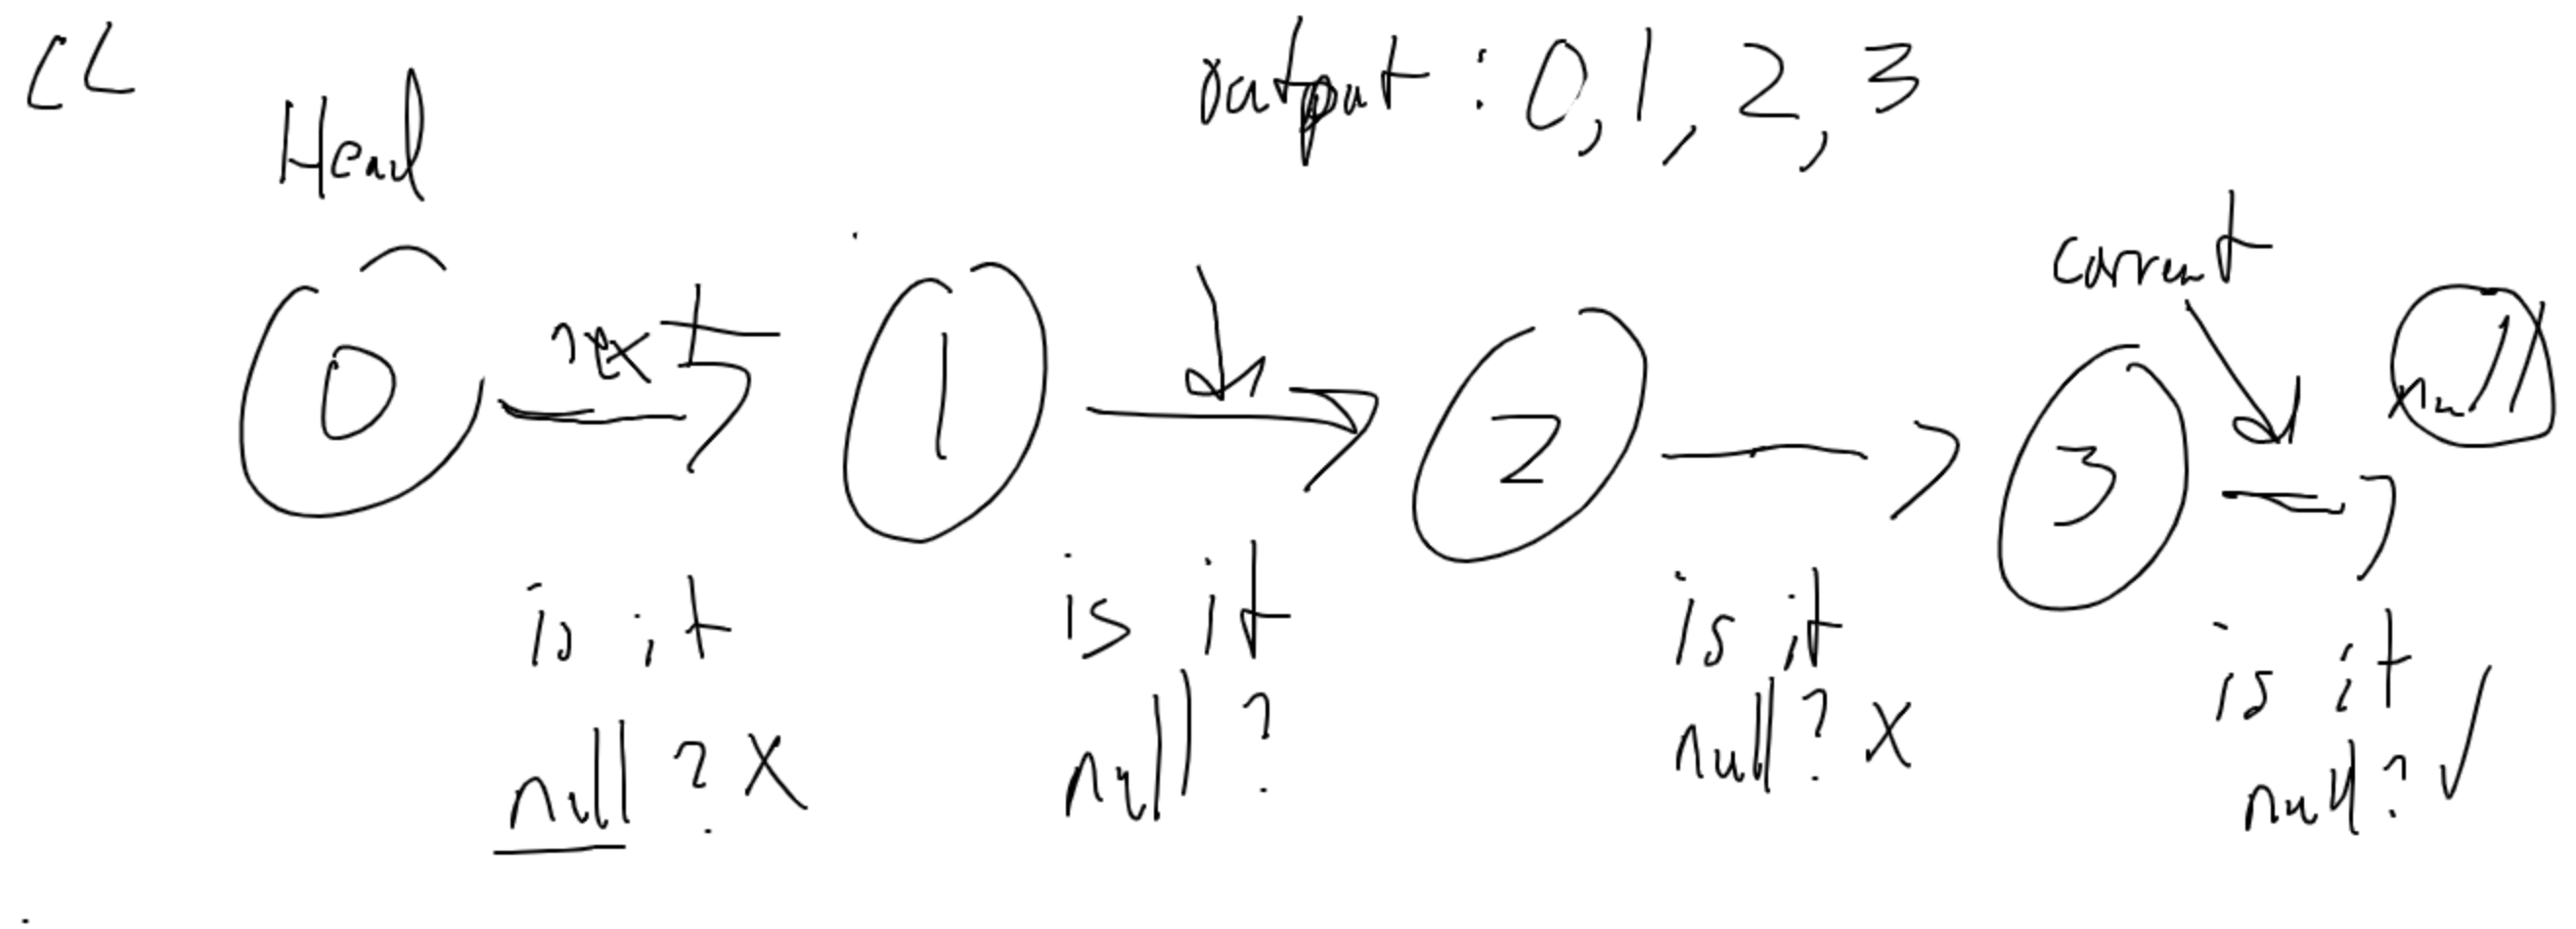 LL
output : 0, 1, 2, 3
Head
current
0 next 1 2 3 null
is it null? X
is it null?
is it null? X
is it null? ✓